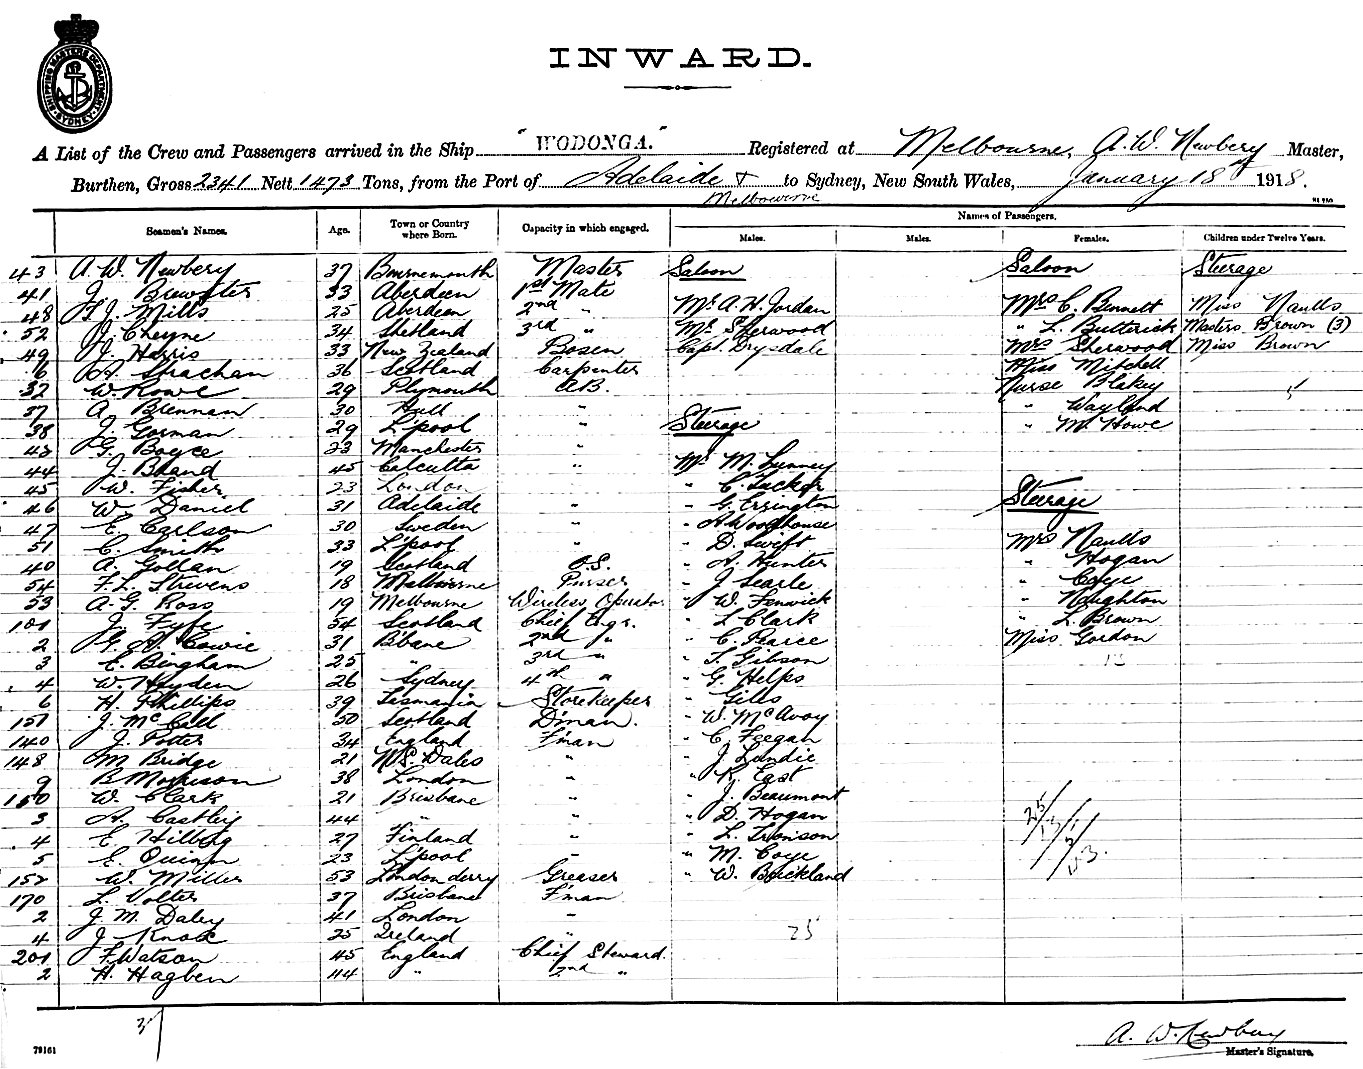 SHIPPING MASTERS DEPARTMENT SYDNEY
INWARD.
A List of the Crew and Passengers arrived in the Ship "WODONGA." Registered at Melbourne, A. W. Newbery Master,
Burthen, Gross 2341 Nett 1473 Tons, from the Port of Adelaide & Melbourne to Sydney, New South Wales, January 18 1918.
Names of Passengers.
Seamen's Names. Age. Town or Country where Born. Capacity in which engaged. Males. Males. Females. Children under Twelve Years.
43 A. W. Newbery 37 Bournemouth Master Saloon Saloon Steerage
41 J. Brewster 33 Aberdeen 1st Mate
48 F. J. Mills 25 Aberdeen 2nd " Mr A. H. Jordan Mrs C. Bennett Miss Naulls
52 J. Cheyne 34 Shetland 3rd " Mr Sherwood " L. Butterick Masters Brown (3)
49 J. Harris 33 New Zealand Bosen Capt. Drysdale Mrs Sherwood Miss Brown
6 A. Strachan 36 Scotland Carpenter Miss Mitchell
32 W. Rowe 29 Plymouth A.B. Nurse Blakey 5
37 A. Brennan 30 Hull " " Wayland
38 J. Gorman 29 L'pool " Steerage " M. Howe
42 G. Boyce 23 Manchester "
44 J. Bland 45 Calcutta " Mr M. Lunney
45 W. Fisher 23 London " " C. Tucker Steerage
46 W. Daniel 31 Adelaide " " G. Errington
47 E. Carlson 30 Sweden " " A. Woodhouse
51 C. Smith 33 L'pool " " D. Swift Mrs Naulls
40 A. Gollan 19 Scotland O.S. " A. Hunter " Hogan
54 F. L. Stevens 18 Melbourne Purser " J. Searle " Coye
53 A. G. Ross 19 Melbourne Wireless Operator " W. Fenwick " Naughton
101 J. Fyfe 54 Scotland Chief Engr. " L. Clark " L. Brown
2 G. A. Cowie 31 B'bane 2nd " " C. Pearce Miss Gordon
3 E. Bingham 25 " 3rd " " T. Gibson
4 W. Hayden 26 Sydney 4th " " G. Helps
6 H. Phillips 39 Tasmania Storekeeper " Giles
151 J. McCall 50 Scotland D'man. " W. McAvoy
140 J. Potter 34 England F'man " C. Feegan
148 M Bridge 21 N.S. Wales " " J. Lundie
9 B. Morrison 38 London " " R. East
150 W. Clark 21 Brisbane " " J. Beaumont
3 A. Castley 44 " " " D. Hogan
4 E. Hilberg 27 Finland " " L. Tronson
5 E. Quinn 23 L'pool " " M. Coye
152 W. Miller 53 Londonderry Greaser " W. Brickland
170 L. Volter 37 Brisbane F'man
2 J. M. Daley 41 London "
4 J. Knox 25 Ireland " 25
201 F. Watson 45 England Chief Steward
2 H. Hagben 44 " 2nd "
25/13/5/43.
37
A. W. Newbery
79161 Master's Signature.